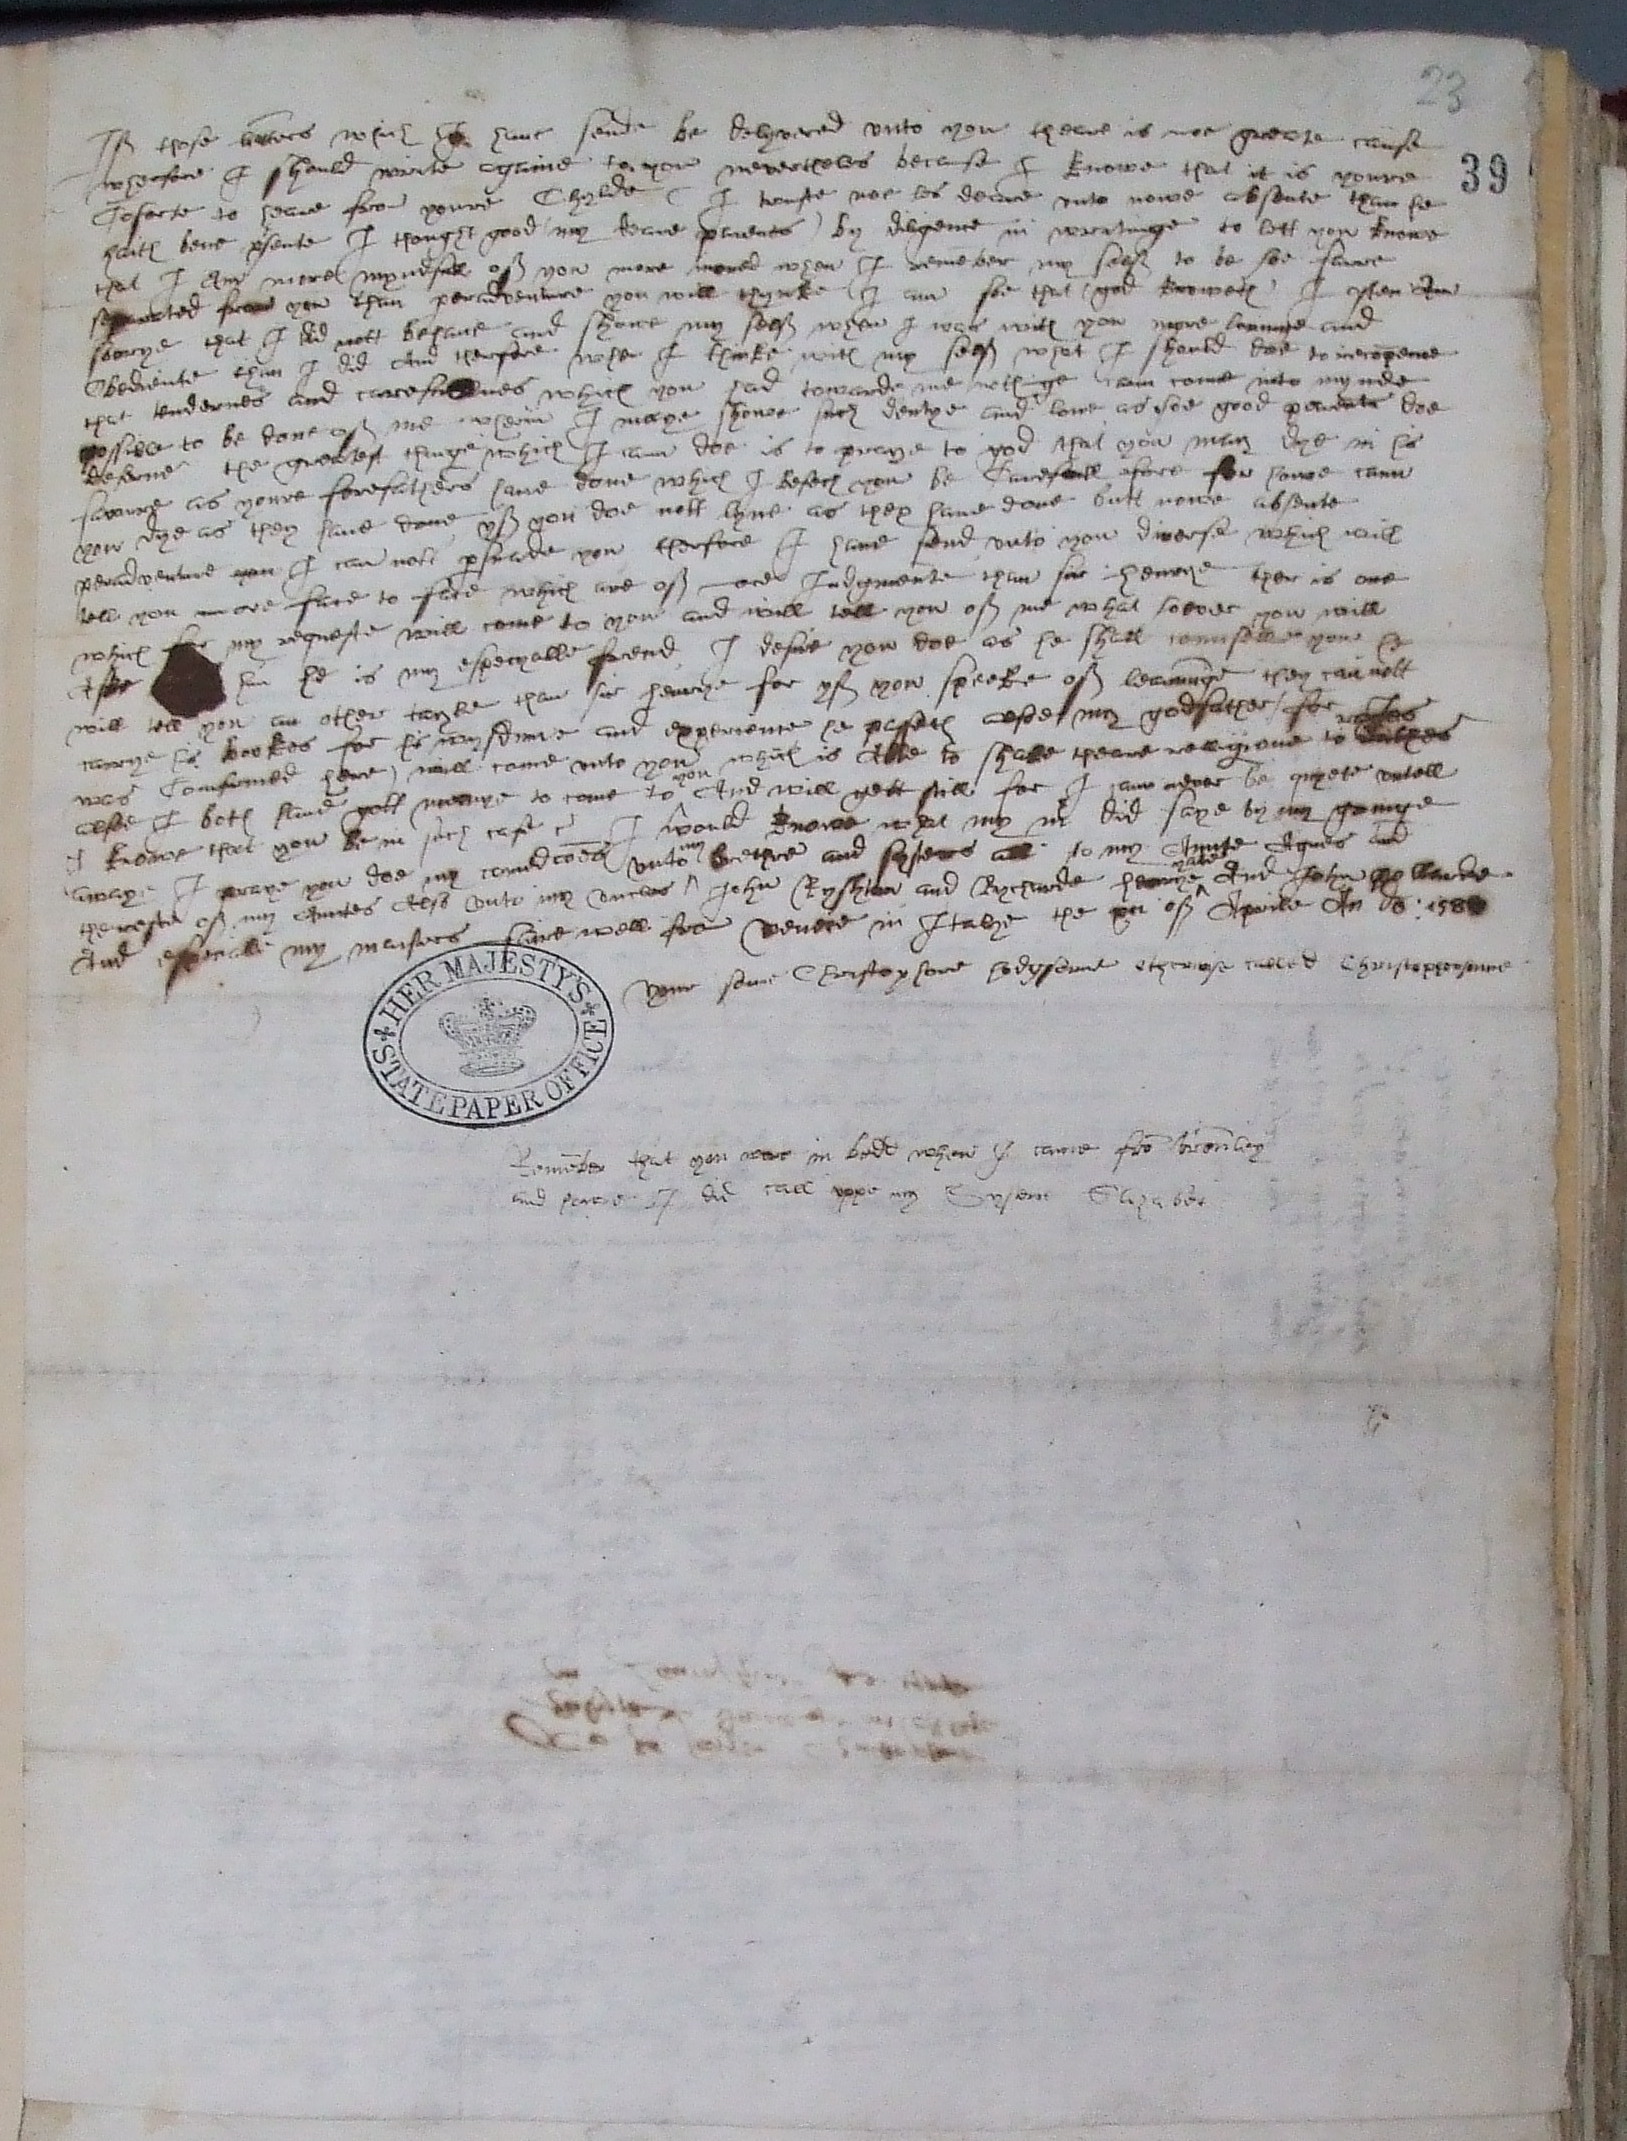 23
39
Iff those letters which I have sende be delyvered unto you theare is noe greate cause
wherfore I should write againe to you nevertheles because I knowe that it is youre
Cōforte to heare frō youre Chylde ( I truste noe les deare unto nowe absente than he
haith bene psente I thought good (my deare parents) by diligence in wrytinge to lett you knowe
that I am more myndfull off you more moved when I remēber my selff to be soe farre
separated from you than peradventure you will thynke (I am soe that (god knoweth) I often am
sorrye that I did nott behave and showe my selff when I was with you more lovinge and
Obediente than I did And therfore whē I thinke with my selff what I should doe to recōpence
that tendernes and carefulnes which you had towarde me nothinge cann come into mynde
possible to be done off me wherin I maye showe such dewtye and love as soe good parents doe
deserve the greatest thinge which I can doe is to praye to god that you may dye in his
favoure as youre forefathers have done which I besech you be Carefull fore for howe cann
you dye as they have done yff you doe nott lyve as they have done butt nowe absente
peradventure I can nott pswade you therfore I have send unto you diverse which will
tell you more face to face which are off more Judgmente than sir henrye ther is one
which for my requeste will come to you and will tell you off me what soever you will
Aske him he is my especyalle frend I desire you doe as he shall counselle you he
will tell you an other tayle than sir henrye for yff you speake off learninge they can nott
carrye his bookes for his wysdome and experience he passeth alsoe my godfather (for I
was Confirmed heare) will come unto you which is Able to shake theare religione to
alsoe I both have gott manye to come to you And will gett still for I can never be quyete untell
I knowe that you be in such case &c I would knowe what my mr did saye by my goinge
awaye I praye you doe my cōmendcōns unto my brethre and systers all to my Aunte Agnes and
the reste off my Auntes Also unto my uncles John Ryshton and Rycharde henrye And John pollarde
And especialle my maisters fare well frō venice in Italye the xii off Aprile An do: 158
Your sonne Christophore hodgsonne otherwise called Christophersonne
HER MAJESTY'S
STATE PAPER OFFICE
Remēber that you were in bedd when I came frō
and howe I did call uppe my Systere Elizabet